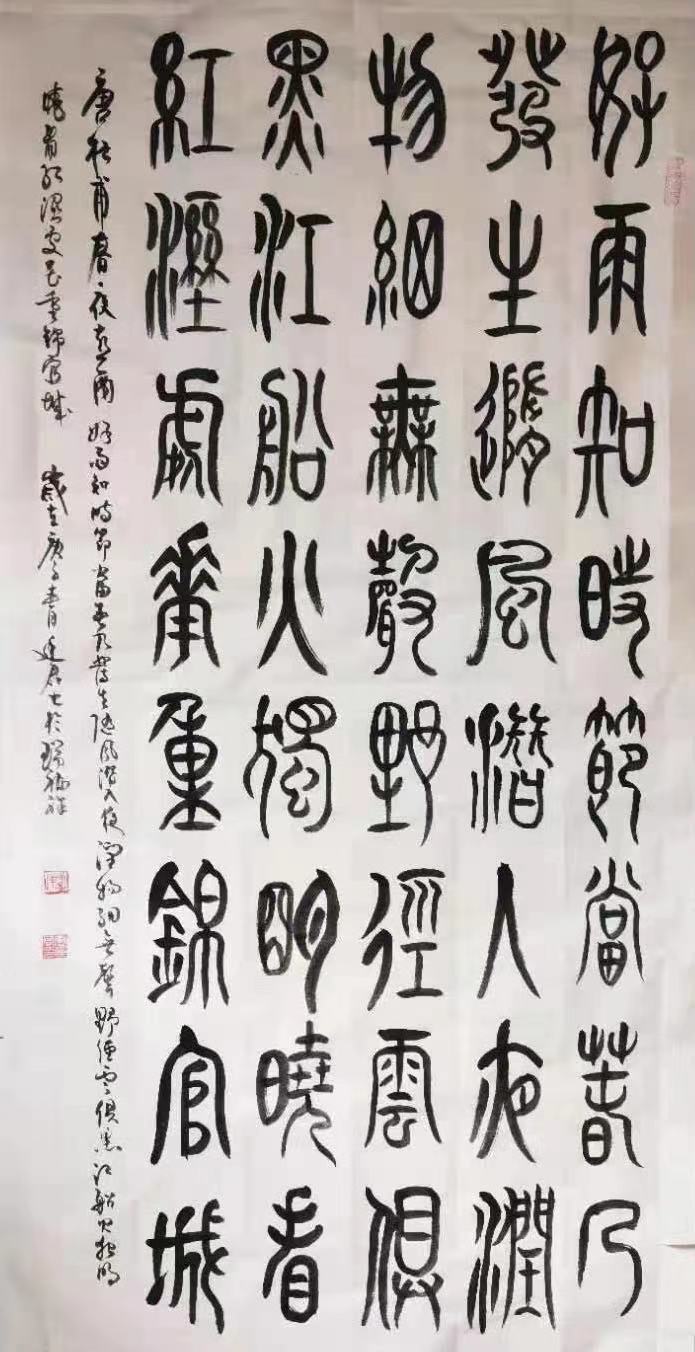 好雨知時節當春乃
發生隨風潛入夜潤
物細無聲野徑雲俱
黑江船火獨明曉看
紅濕處花重錦官城
唐杜甫春夜喜雨 好雨知時節當春乃發生隨風潛入夜潤物細無聲野徑雲俱黑江船火獨明
曉看紅濕處花重錦官城 歲在庚子春月